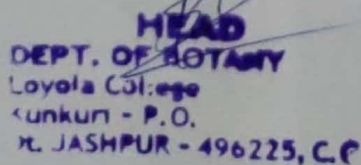 HEAD
DEPT. OF BOTANY
Loyola College
Kunkuri - P.O.
t. JASHPUR - 496225, C.G